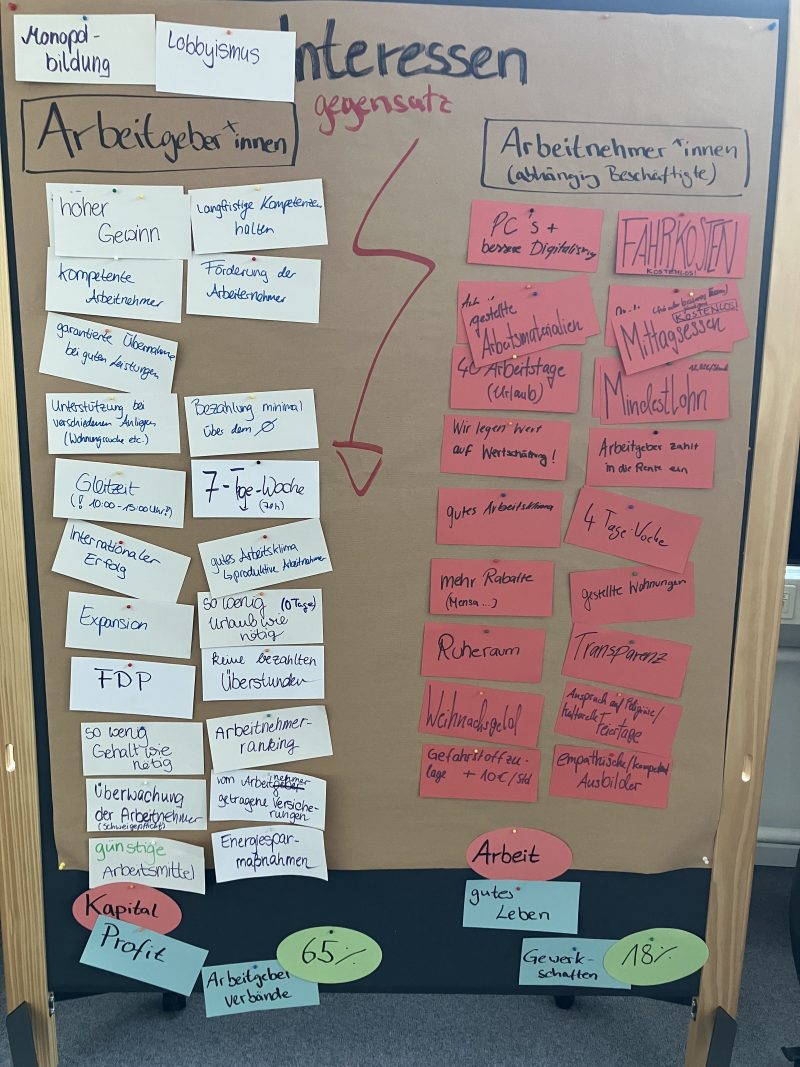 Monopol-
bildung
Lobbyismus
Interessen
gegensatz
Arbeitgeber*innen
höher
Gewinn
langfristige Kompetenzen
halten
kompetente
Arbeitnehmer
Förderung der
Arbeiternehmer
garantierte Übernahme
bei guten Leistungen
Unterstützung bei
verschiedenen Anliegen
(Wohnungssuche etc.)
Bezahlung minimal
über dem Ø
Gleitzeit
(! 10:00-15:00 Uhr?)
7-Tage-Woche
(70h)
Internationaler
Erfolg
gutes Arbeitsklima
↳ produktive Arbeitnehmer
Expansion
so wenig (10 Tage)
Urlaub wie
nötig
FDP
keine bezahlten
Überstunden
so wenig
Gehalt wie
nötig
Arbeitnehmer-
ranking
Überwachung
der Arbeitnehmer
(schweigepflicht)
vom Arbeitnehmer
getragene Versiche-
rungen
günstige
Arbeitsmittel
Energiespar-
maßnahmen
Kapital
Profit
Arbeitgeber
verbände
65%
Arbeitnehmer*innen
(abhängig Beschäftigte)
PC's +
bessere Digitalisierung
FAHRKOSTEN
KOSTENLOS!
gestellte
Arbeitsmaterialien
KOSTENLOS!
Mittagsessen
40 Arbeitstage
(Urlaub)
Mindestlohn
Wir legen Wert
auf Wertschätzung!
Arbeitgeber zahlt
in die Rente ein
gutes Arbeitsklima
4 Tage-Woche
mehr Rabatte
(Mensa...)
gestellte Wohnungen
Ruheraum
Transparenz
Weihnachsgeld
Anspruch auf Religiöse/
kulturelle Feiertage
Gefahrstoffzu-
lage + 10€/Std
empathische/kompetent
Ausbilder
Arbeit
gutes
Leben
Gewerk-
schaften
18%